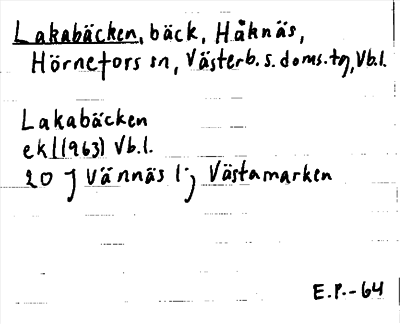 Lakabäcken, bäck, Håknäs,
Hörnefors sn, Västerb. s. doms. tg, Vb.l.
Lakabäcken
ekl(1963) Vb.l.
20 J Vännäs l-j Västamarken
E.P.-64